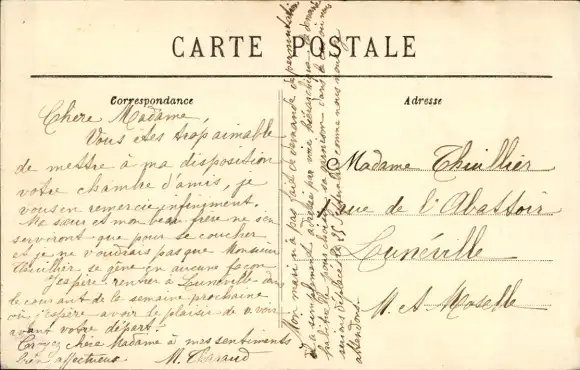 CARTE POSTALE
Correspondance
Adresse
Chère Madame,
Vous êtes trop aimable
de mettre à ma disposition
votre chambre d'amis, je
vous en remercie infiniment.
Ma sœur et mon beau frère ne s'en
serviront que pour se coucher
et je ne voudrais pas que Monsieur
Thuillier se gêne en aucune façon
J'espère rentrer à Lunéville dans
le courant de la semaine prochaine
où j'espère avoir le plaisir de v. voir
avant votre départ.
Croyez chère Madame à mes sentiments
bien affectueux
Madame Thuillier
7 rue de l'Abattoir
Lunéville
M. et Moselle
Mon mari n'a pas fait de demande de permutation
il a simplement adressé par voie hiérarchique
attendons.